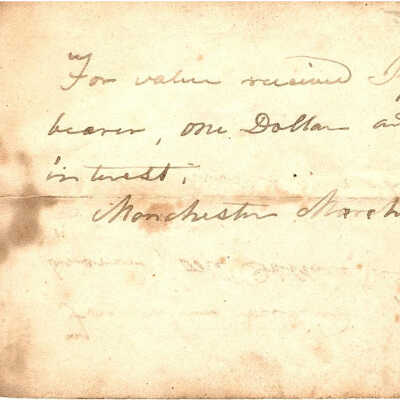 For value received I
bearer, one Dollar an
interest;
Manchester March